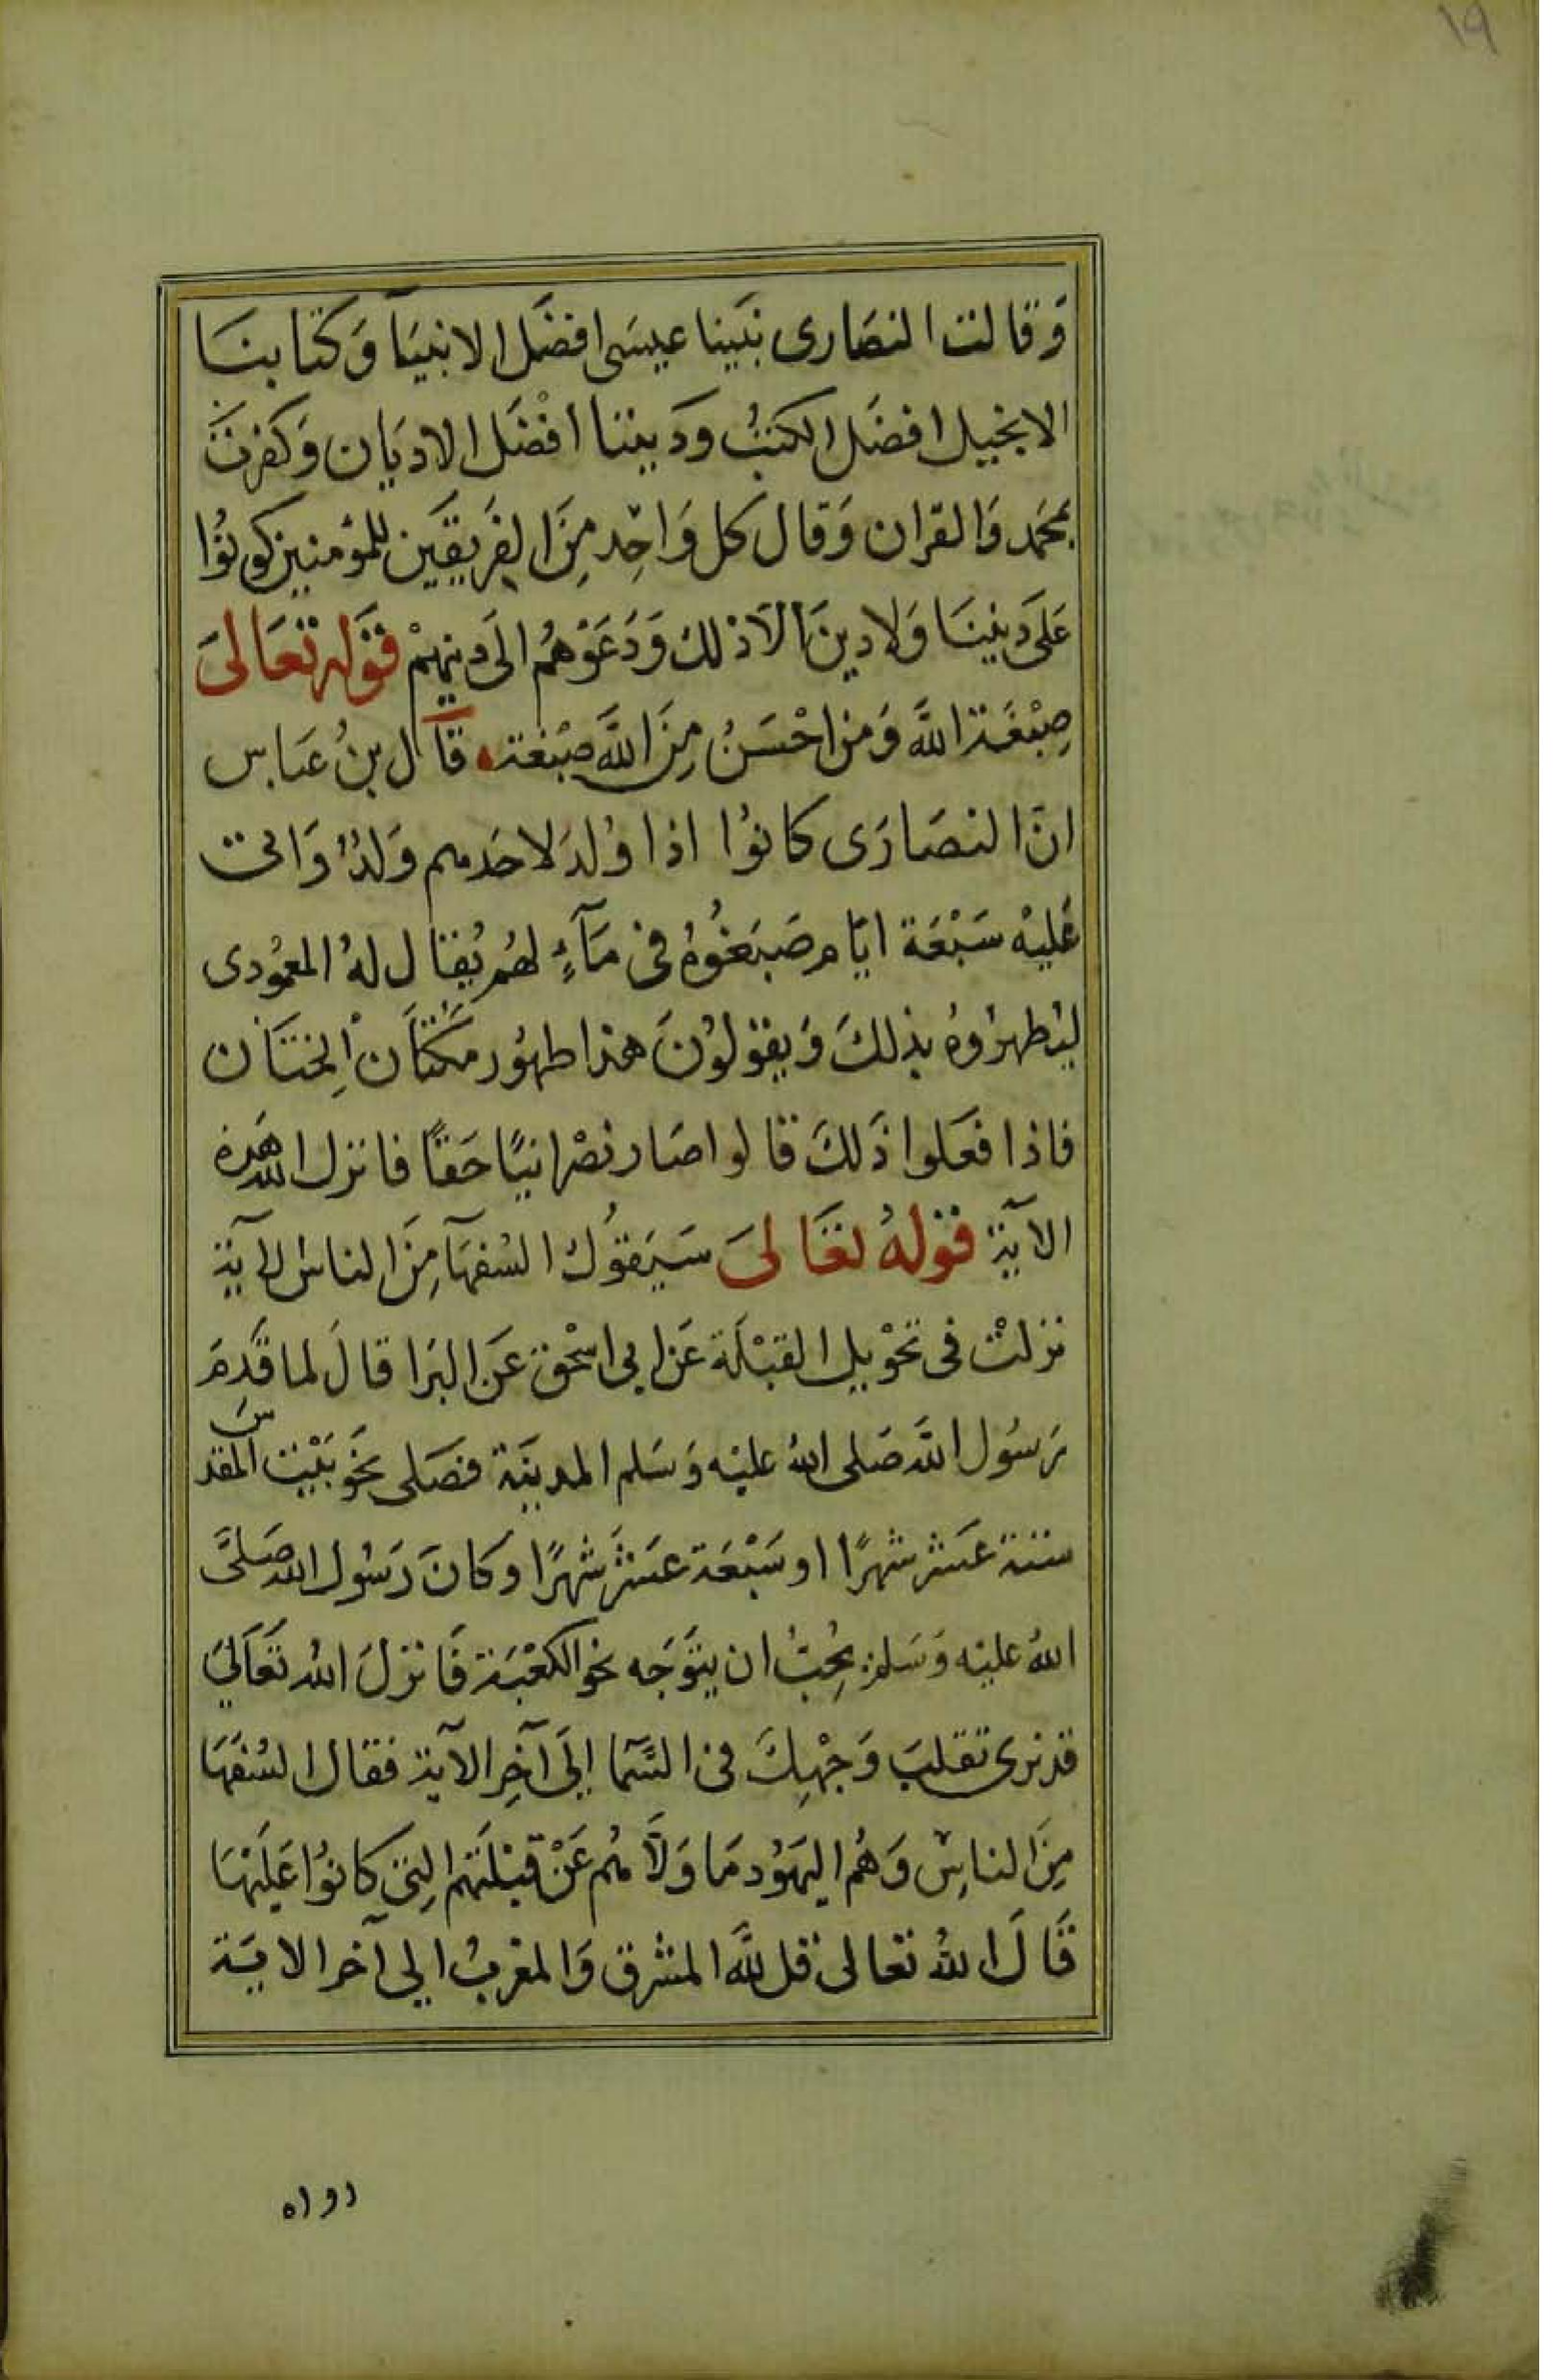 ١٩
وَقالت النصَارى نبَينا عيسَى افضَل الانبيَآ وَكتابنَا
الانجيل افضَل الكتبُ ودَيننا افْضَل الادیَان وَكفرتَ
بمحَمد وَالقران وَقال كل وَاحِد مِنَ الفَريقَين للمؤمنين كونُوا
عَلىَ دينِنَا وَلا دينَ الاّ ذلك وَدَعَوْهُم الىَ دينِهمْ قوَله تعَالىَ
صِبْغَة اللَّه وَمن احْسَنُ مِنَ اللَّه صِبْغة قآل بنُ عبَاس
انَّ النصَارَى كانوُا اذا وُلدَ لاحَدهم وَلدٌ وَاتى
عَليْه سَبْعَة ايّام صَبَغُوهُ فى مَآءٍ لهُم يُقال لهُ المعمُودى
ليُطهرُوهُ بذلكَ وَيقولوُنَ هذا طهوُر مكَانَ الِختَان
فاذا فعَلوا ذَلكَ قالوا صَار نصْرانيًا حَقاً فانزل الله هَذه
الآية قولهُ تعَالىَ سَيَقوُل السُفهَآ مِنَ الناس الآية
نزلتْ فى تحْويل القبْلَة عَن ابى اسْحٰق عَن البرَا قالَ لما قَدِمَ
رَسُول اللَّه صَلى اللهُ عليْه وَسَلم المدينَة فصَلى نحَو بَيْت المقدس
ستة عَشر شهرًا او سَبْعَة عشَر شهرًا وكانَ رَسُول الله صَلىَّ
اللهُ عليْه وَسَلم يُحِبُ ان يتوَجَه نحو الكعْبَة فَانزلَ اللهُ تعَالىَ
قد نرى تقلبَ وَجْهِكَ فى السَّمآ إلىَ آخِر الآية فقال السُفهَا
مِنَ الناسِ وَهُم اليهَوُد مَا وَلَّاهُم عَنْ قبْلتهَم التِى كانوُا عَليْهَا
قَالَ اللهُ تعالى قل للَّه المشرق وَالمغربُ الى آخر الايَة
رواه